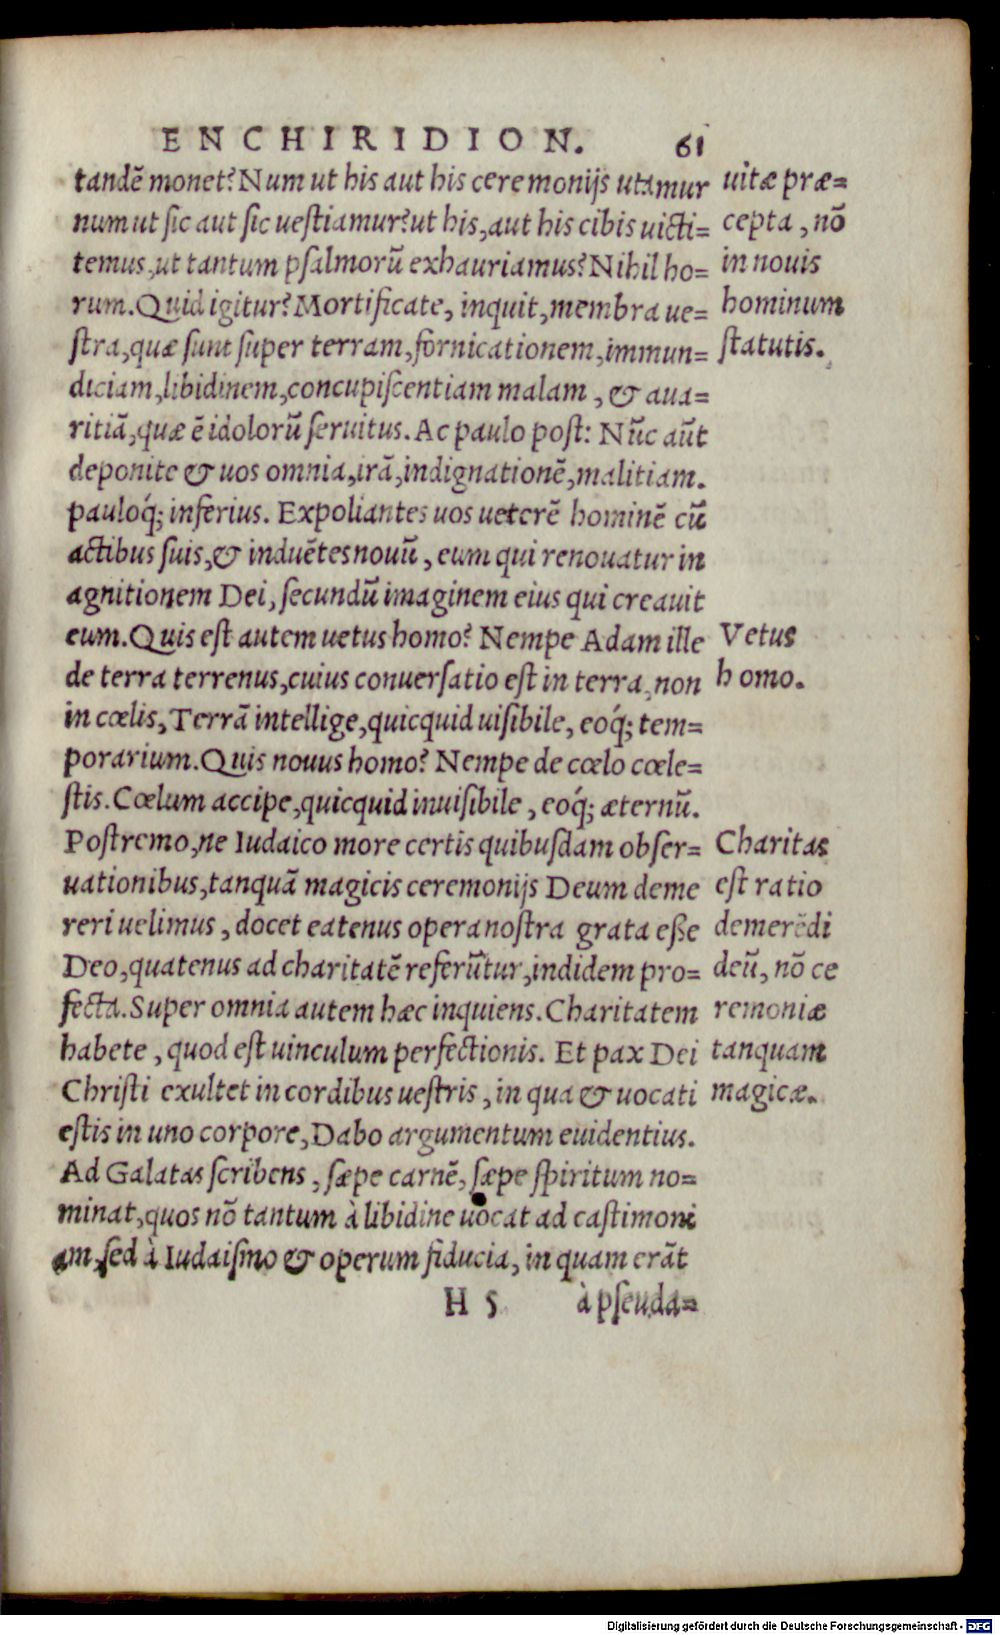 ENCHIRIDION. 61
tandẽ monet? Num ut his aut his ceremonijs utamur
num ut sic aut sic uestiamur? ut his, aut his cibis uicti=
temus, ut tantum psalmorũ exhauriamus? Nihil ho=
rum. Quid igitur? Mortificate, inquit, membra ue=
stra, quæ sunt super terram, fornicationem, immun=
diciam, libidinem, concupiscentiam malam, & aua=
ritiã, quæ ẽ idolorũ seruitus. Ac paulo post: Nũc aũt
deponite & uos omnia, irã, indignationẽ, malitiam.
pauloq́; inferius. Expoliantes uos ueterẽ hominẽ cũ
actibus suis, & induẽtes nouũ, eum qui renouatur in
agnitionem Dei, secundũ imaginem eius qui creauit
eum. Quis est autem uetus homo? Nempe Adam ille
de terra terrenus, cuius conuersatio est in terra, non
in cœlis, Terrã intellige, quicquid uisibile, eoq́; tem=
porarium. Quis nouus homo? Nempe de cœlo cœle=
stis. Cœlum accipe, quicquid inuisibile, eoq́; æternũ.
Postremo, ne Iudaico more certis quibusdam obser=
uationibus, tanquã magicis ceremonijs Deum deme
reri uelimus, docet eatenus opera nostra grata eße
Deo, quatenus ad charitatẽ referũtur, indidem pro=
fecta. Super omnia autem hæc inquiens. Charitatem
habete, quod est uinculum perfectionis. Et pax Dei
Christi exultet in cordibus uestris, in qua & uocati
estis in uno corpore, Dabo argumentum euidentius.
Ad Galatas scribens, sæpe carnẽ, sæpe spiritum no=
minat, quos nõ tantum à libidine uocat ad castimoni
am, sed à Iudaismo & operum fiducia, in quam erãt
H 5 à pseuda=
uitæ præ=
cepta, nõ
in nouis
hominum
statutis.
Vetus
homo.
Charitas
est ratio
demerẽdi
deũ, nõ ce
remoniæ
tanquam
magicæ.
Digitalisierung gefördert durch die Deutsche Forschungsgemeinschaft - DFG